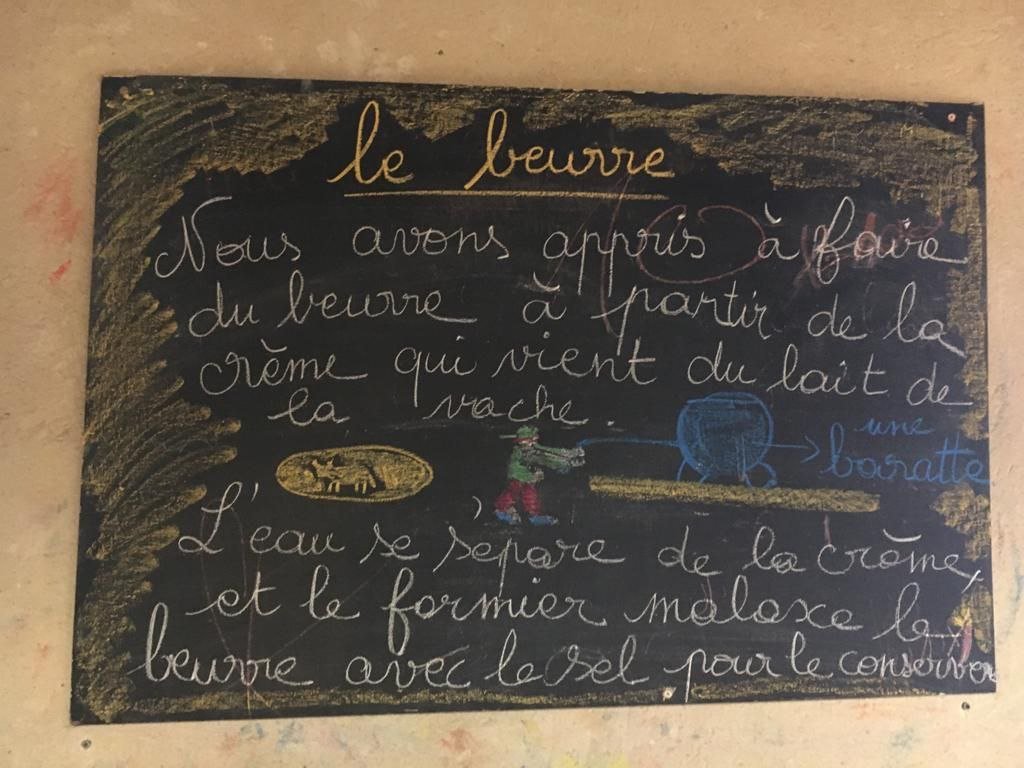 le beurre
Nous avons appris à faire
du beurre à partir de la
crème qui vient du lait de
la vache.
une
baratte
L'eau se sépare de la crème,
et le fermier malaxe le
beurre avec le sel pour le conserver